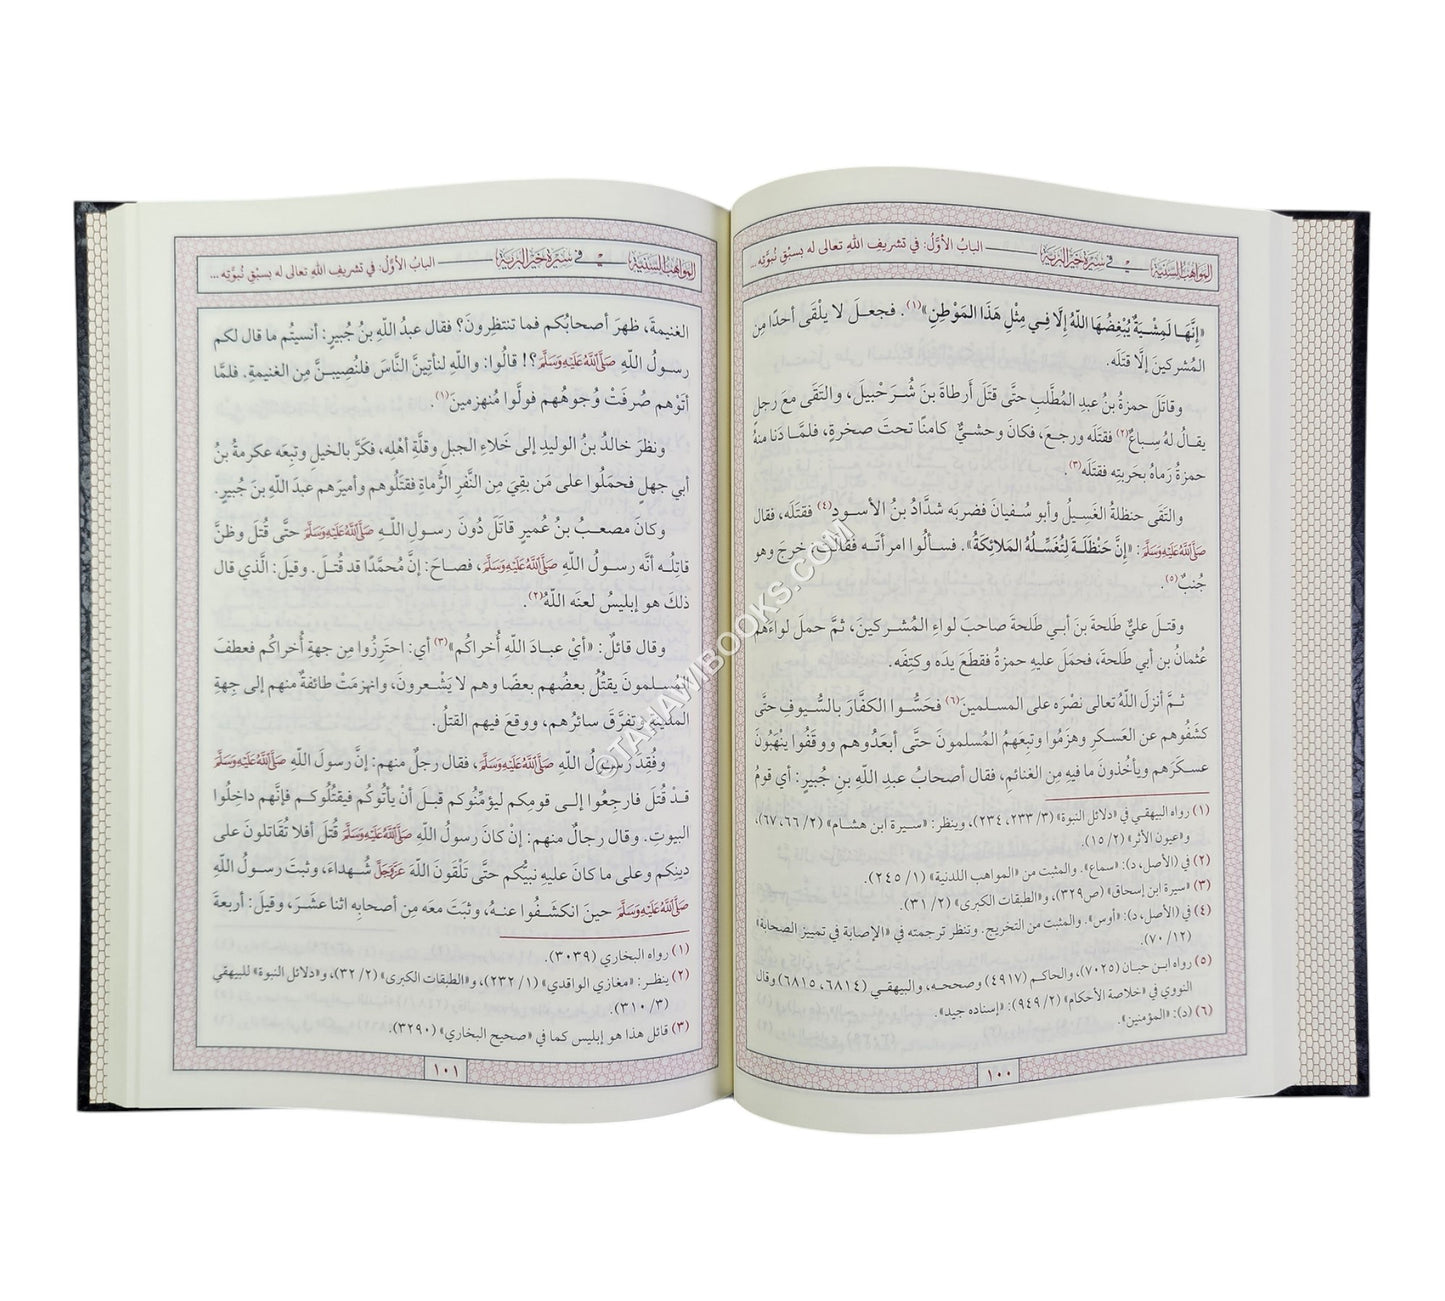 المواهب السنية في سيرة خير البرية الباب الأول: في تشريف الله تعالى له بسبق نبوته ...
«إِنَّهَا لَمِشْيَةٌ يُبْغِضُهَا اللَّهُ إِلَّا فِي مِثْلِ هَذَا المَوْطِنِ»(١). فجعلَ لا يلْقَى أحدًا مِن
المُشركينَ إلَّا قتلَه.
وقاتَلَ حمزةُ بنُ عبدِ المُطَّلبِ حتَّى قتَلَ أَرطاةَ بنَ شُرَحْبيلَ، والتَقَى معَ رجلٍ
يقالُ لهُ سِباعٌ(٢) فقتَله ورجعَ، فكانَ وحشيٌّ كامنًا تحتَ صخرةٍ، فلمَّا دَنا منهُ
حمزةُ رَماهُ بحَربتِه فقتَلَه(٣).
والتَقَى حنظلةُ الغَسِيلُ وأبو سُفيانَ فضربَه شدَّادُ بنُ الأسودِ(٤) فقتَلَه، فقال
صَلَّى اللَّهُ عَلَيْهِ وَسَلَّمَ: «إِنَّ حَنْظَلَةَ لتُغَسِّلُهُ المَلائِكَةُ». فسألُوا امرأتَه فقالَت: خرجَ وهو
جُنبٌ(٥).
وقتلَ عليٌّ طَلحةَ بنَ أبي طَلحةَ صاحبَ لواءِ المُشركينَ، ثمَّ حملَ لواءَهم
عُثمانُ بن أبي طَلحةَ، فحمَلَ عليهِ حمزةُ فقطَعَ يدَه وكتِفَه.
ثمَّ أنزلَ اللَّهُ تعالى نصْرَه على المسلمينَ(٦) فحَسُّوا الكفَّارَ بالسُّيوفِ حتَّى
كشَفُوهم عن العَسكرِ وهزَمُوا وتبِعَهمُ المُسلمونَ حتَّى أبعَدُوهم ووقَفُوا ينْهَبُونَ
عسكَرَهم ويأخُذونَ ما فيهِ مِن الغنائمِ، فقال أصحابُ عبدِ اللَّهِ بنِ جُبيرٍ: أي قومُ
(١) رواه البيهقي في «دلائل النبوة» (٣/ ٢٣٣، ٢٣٤)، وينظر: «سيرة ابن هشام» (٢/ ٦٦، ٦٧)،
و«عيون الأثر» (٢/ ١٥).
(٢) في (الأصل، د): «سماع». والمثبت من «المواهب اللدنية» (١/ ٢٤٥).
(٣) «سيرة ابن إسحاق» (ص٣٢٩)، و«الطبقات الكبرى» (٢/ ٣١).
(٤) في (الأصل، د): «أوس». والمثبت من التخريج. وتنظر ترجمته في «الإصابة في تمييز الصحابة»
(١٢/ ٧٠).
(٥) رواه ابن حبان (٧٠٢٥)، والحاكم (٤٩١٧) وصححه، والبيهقي (٦٨١٤، ٦٨١٥) وقال
النووي في «خلاصة الأحكام» (٢/ ٩٤٩): «إسناده جيد».
(٦) (د): «المؤمنين».
١٠٠
المواهب السنية في سيرة خير البرية الباب الأول: في تشريف الله تعالى له بسبق نبوته ...
الغنيمةَ، ظهرَ أصحابُكم فما تنتظِرونَ؟ فقال عبدُ اللَّهِ بنُ جُبيرٍ: أنسيتُم ما قال لكم
رسولُ اللَّهِ صَلَّى اللَّهُ عَلَيْهِ وَسَلَّمَ؟! قالُوا: واللَّهِ لنأتِينَّ النَّاسَ فلنُصِيبنَّ مِن الغنيمةِ. فلمَّا
أتَوْهم صُرفَتْ وُجوهُهم فولَّوا مُنهزمينَ(١).
ونظرَ خالدُ بنُ الوليدِ إلى خَلاءِ الجبلِ وقلَّةِ أهْلِه، فكَرَّ بالخيلِ وتبِعَه عكرمةُ بنُ
أبي جهلٍ فحمَلُوا على مَن بقِيَ مِن النَّفَرِ الرُّماةِ فقتَلُوهم وأميرَهم عبدَ اللَّهِ بنَ جُبيرٍ.
وكانَ مصعبُ بنُ عُميرٍ قاتَلَ دُونَ رسولِ اللَّهِ صَلَّى اللَّهُ عَلَيْهِ وَسَلَّمَ حتَّى قُتلَ وظنَّ
قاتِلُه أنَّه رسولُ اللَّهِ صَلَّى اللَّهُ عَلَيْهِ وَسَلَّمَ، فصاحَ: إنَّ مُحمَّدًا قد قُتلَ. وقيلَ: الَّذي قال
ذلكَ هو إبليسُ لعنَه اللَّهُ(٢).
وقال قائلٌ: «أيْ عبادَ اللَّهِ أُخراكُم»(٣) أي: احترِزُوا مِن جهةِ أُخراكُم فعطفَ
المُسلمونَ يقتُلُ بعضُهم بعضًا وهم لا يَشْعرونَ، وانهزمَتْ طائفةٌ منهم إلى جِهةِ
المدينةِ وتفرَّقَ سائرُهم، ووقعَ فيهم القتلُ.
وفُقِدَ رسولُ اللَّهِ صَلَّى اللَّهُ عَلَيْهِ وَسَلَّمَ، فقال رجلٌ منهم: إنَّ رسولَ اللَّهِ صَلَّى اللَّهُ عَلَيْهِ وَسَلَّمَ
قدْ قُتلَ فارجِعُوا إلى قومِكم ليؤمِّنُوكم قبلَ أنْ يأتُوكُم فيقتُلُوكم فإنَّهم داخِلُوا
البيوتِ. وقال رجالٌ منهم: إنْ كانَ رسولُ اللَّهِ صَلَّى اللَّهُ عَلَيْهِ وَسَلَّمَ قُتلَ أفلا تُقاتلونَ على
دينِكم وعلى ما كانَ عليهِ نبيُّكم حتَّى تَلْقَونَ اللَّهَ عَزَّوَجَلَّ شُهداءَ، وثبتَ رسولُ اللَّهِ
صَلَّى اللَّهُ عَلَيْهِ وَسَلَّمَ حينَ انكشَفُوا عنهُ، وثبَتَ معَه مِن أصحابِه اثنا عشَرَ، وقيلَ: أربعةَ
(١) رواه البخاري (٣٠٣٩).
(٢) ينظر: «مغازي الواقدي» (١/ ٢٣٢)، و«الطبقات الكبرى» (٢/ ٣٢)، و«دلائل النبوة» للبيهقي
(٣/ ٣١٠).
(٣) قائل هذا هو إبليس كما في «صحيح البخاري» (٣٢٩٠).
١٠١
©TAHAWIBOOKS.COM